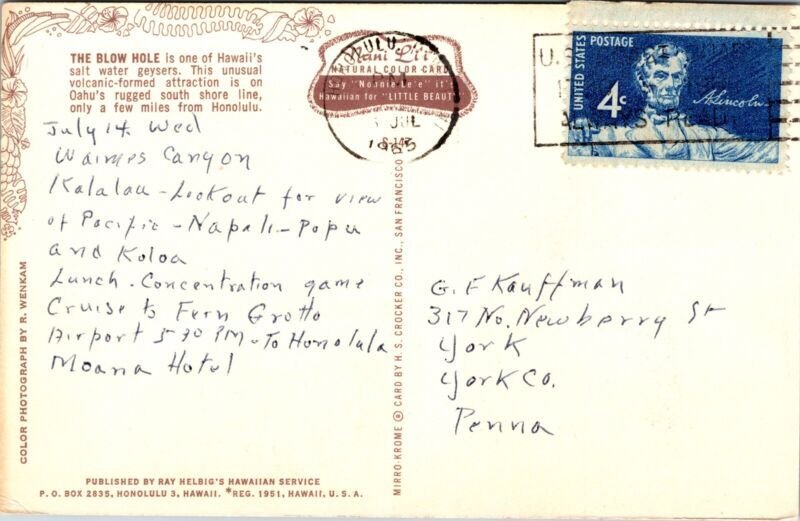 THE BLOW HOLE is one of Hawaii's
salt water geysers. This unusual
volcanic-formed attraction is on
Oahu's rugged south shore line,
only a few miles from Honolulu.
NATURAL COLOR CARD
Say "Noanie Le'e" it's
Hawaiian for "LITTLE BEAUT
HONOLULU
JUL
1965
U.S.
UNITED STATES POSTAGE
4c
A. Lincoln
July 14 Wed
Waimes Canyon
Kalalau - Lookout for view
of Pacific - Napali - Popu
and Koloa
Lunch - Concentration game
Cruise to Fern Grotto
Airport 5 30 PM - To Honolulu
Moana Hotel
G. F Kauffman
317 No. Newberry St
York
York Co.
Penna
COLOR PHOTOGRAPH BY R. WENKAM
MIRRO-KROME ® CARD BY H. S. CROCKER CO., INC., SAN FRANCISCO
PUBLISHED BY RAY HELBIG'S HAWAIIAN SERVICE
P. O. BOX 2835, HONOLULU 3, HAWAII. *REG. 1951, HAWAII, U. S. A.